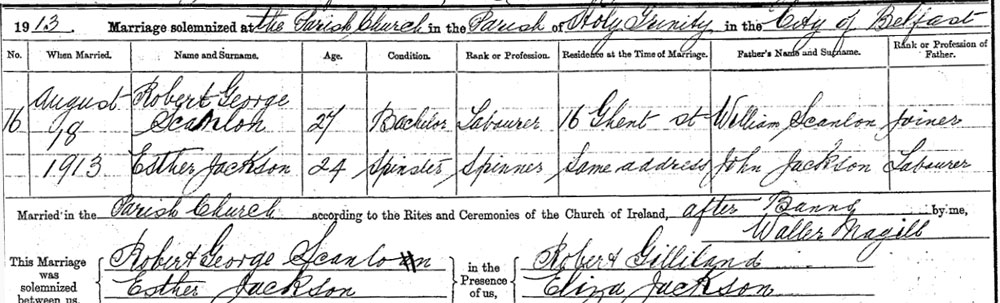 1913. Marriage solemnized at the Parish Church in the Parish of Holy Trinity in the City of Belfast
No. When Married. Name and Surname. Age. Condition. Rank or Profession. Residence at the Time of Marriage. Father's Name and Surname. Rank or Profession of Father.
August Robert George
16 Scanlon 27 Bachelor Labourer 16 Ghent st William Scanlon Joiner
1913 Esther Jackson 24 Spinster Spinner Same address John Jackson Labourer
Married in the Parish Church according to the Rites and Ceremonies of the Church of Ireland, after Banns by me,
Walter Magill
This Marriage was solemnized between us, Robert George Scanlon in the Presence of us, Robert Gilliland
Esther Jackson Eliza Jackson